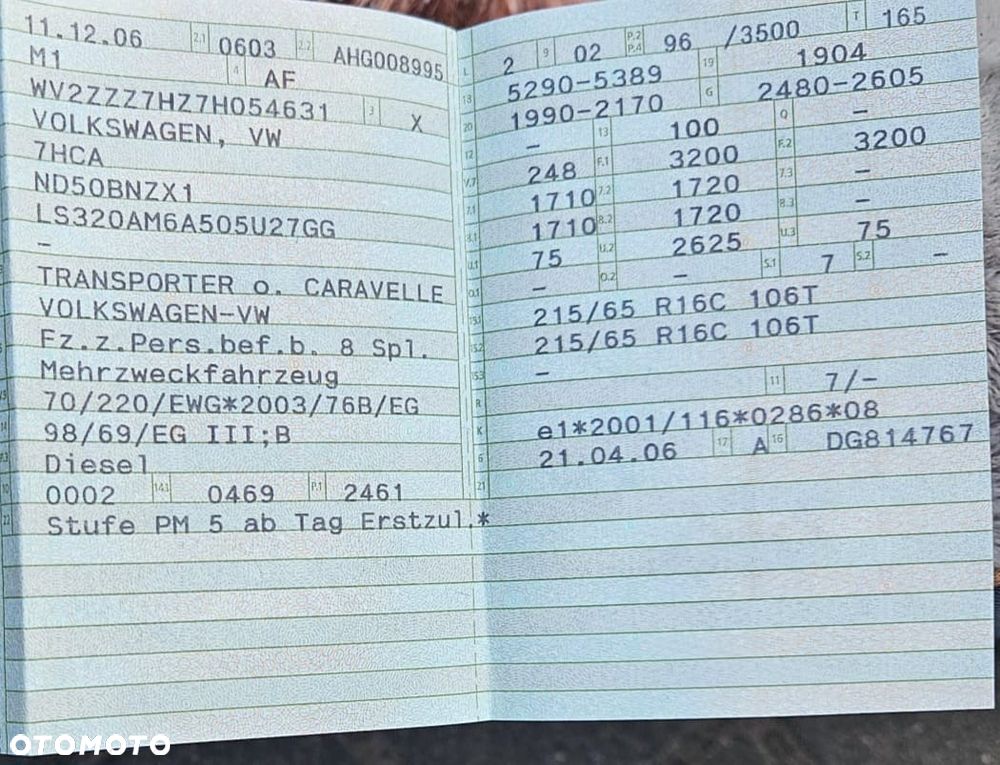 11.12.06 2.1 0603 2.2 AHG008995
M1 4 AF
WV2ZZZ7HZ7H054631 3 X
VOLKSWAGEN, VW
7HCA
ND50BNZX1
LS320AM6A505U27GG
–
TRANSPORTER o. CARAVELLE
VOLKSWAGEN-VW
Fz.z.Pers.bef.b. 8 Spl.
Mehrzweckfahrzeug
70/220/EWG*2003/76B/EG
14 98/69/EG III;B
Diesel
10 0002 14.1 0469 P.1 2461
22 Stufe PM 5 ab Tag Erstzul.*
L 2 9 02 P.2 P.4 96 /3500 T 165
18 5290-5389 19 1904
20 1990-2170 G 2480-2605
12 – 13 100 Q –
V.7 248 F.1 3200 F.2 3200
7.1 1710 7.2 1720 7.3 –
8.1 1710 8.2 1720 8.3 –
U.1 75 U.2 2625 U.3 75
O.1 – O.2 – S.1 7 S.2 –
15.1 215/65 R16C 106T
15.2 215/65 R16C 106T
15.3 –
R 11 7/–
K e1*2001/116*0286*08
6 21.04.06 17 A 16 DG814767
21
OTOMOTO